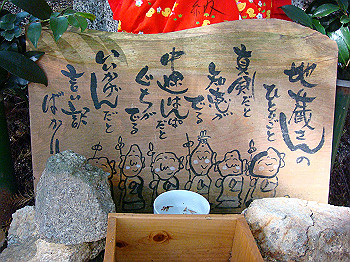 地蔵さんの
ひとりごと
真剣だと
知恵が
でる
中途はんぱだと
ぐちが
でる
いいかげんだと
言い訳
ばかり